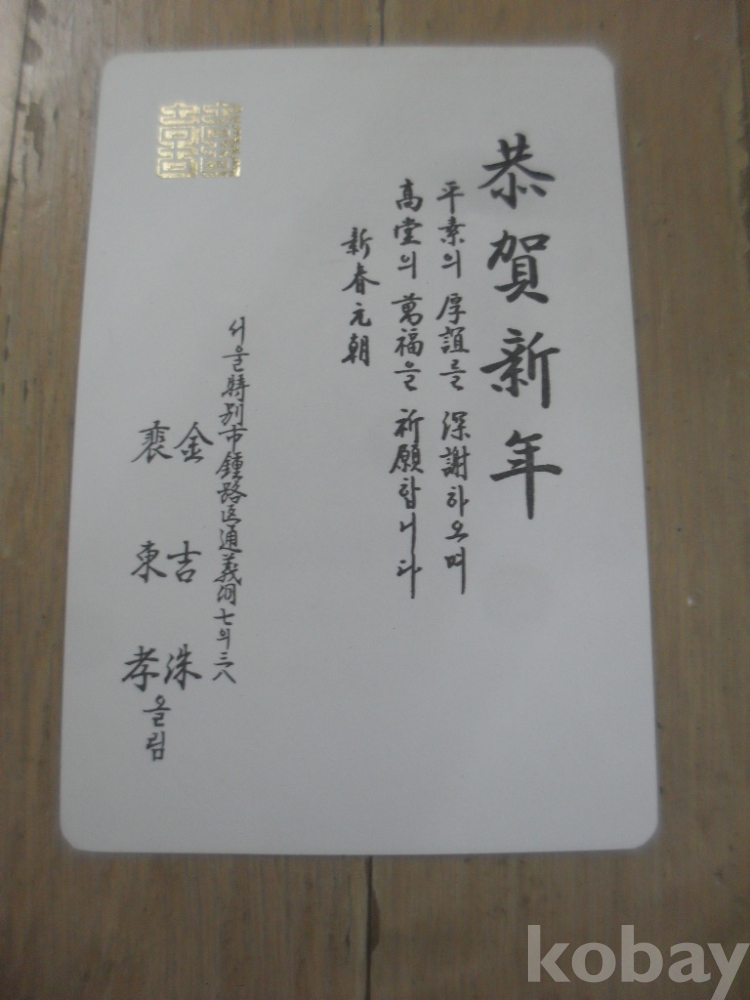 恭賀新年
平素의 厚誼를 深謝하오며
高堂의 萬福을 祈願합니다
新春元朝
서울特別市鍾路區通義洞七의三八
金吉洙
裵東孝 올림
kobay